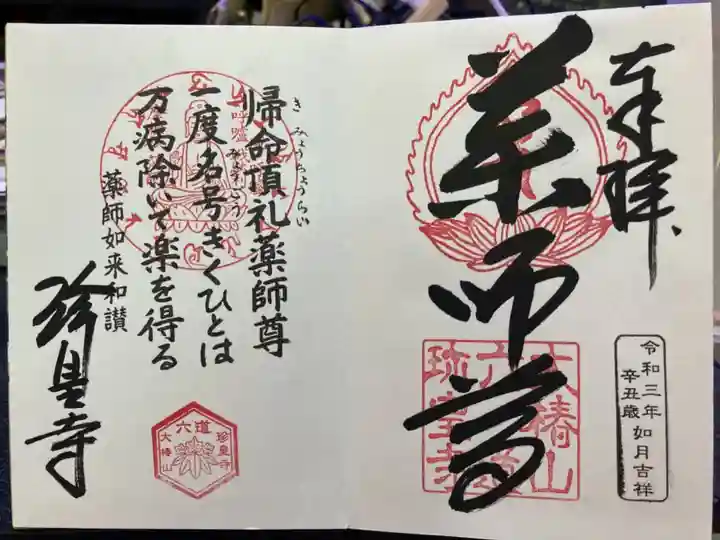 奉拝
薬師尊
大椿山
六道
珍皇寺
令和三年
辛丑歳
如月吉祥
帰命頂礼薬師尊
きみょうちょうらい
一度名号きくひとは
みょうごう
万病除いて楽を得る
薬師如来和讃
珍皇寺
六道
大椿山
珍皇寺